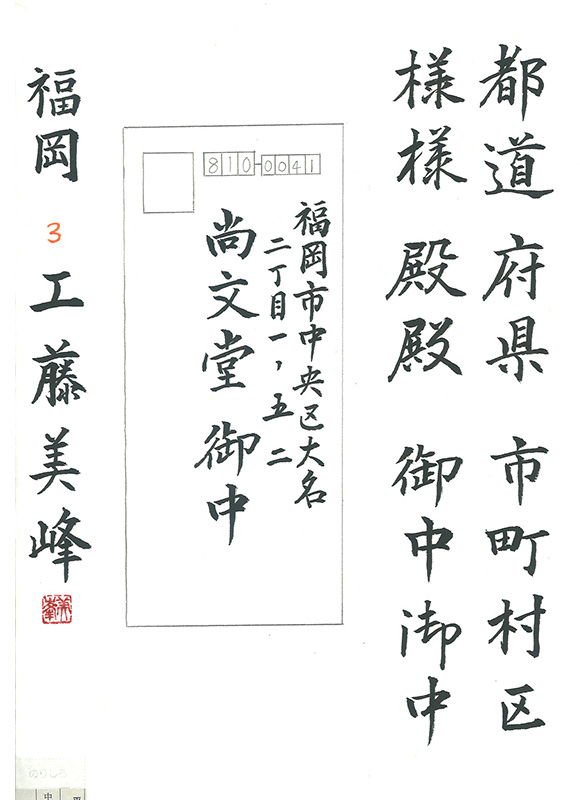 都道府県市町村区
様様殿殿御中御中
810-0041
福岡市中央区大名
二丁目一、五二
尚文堂御中
福岡3工藤美峰
のりしろ